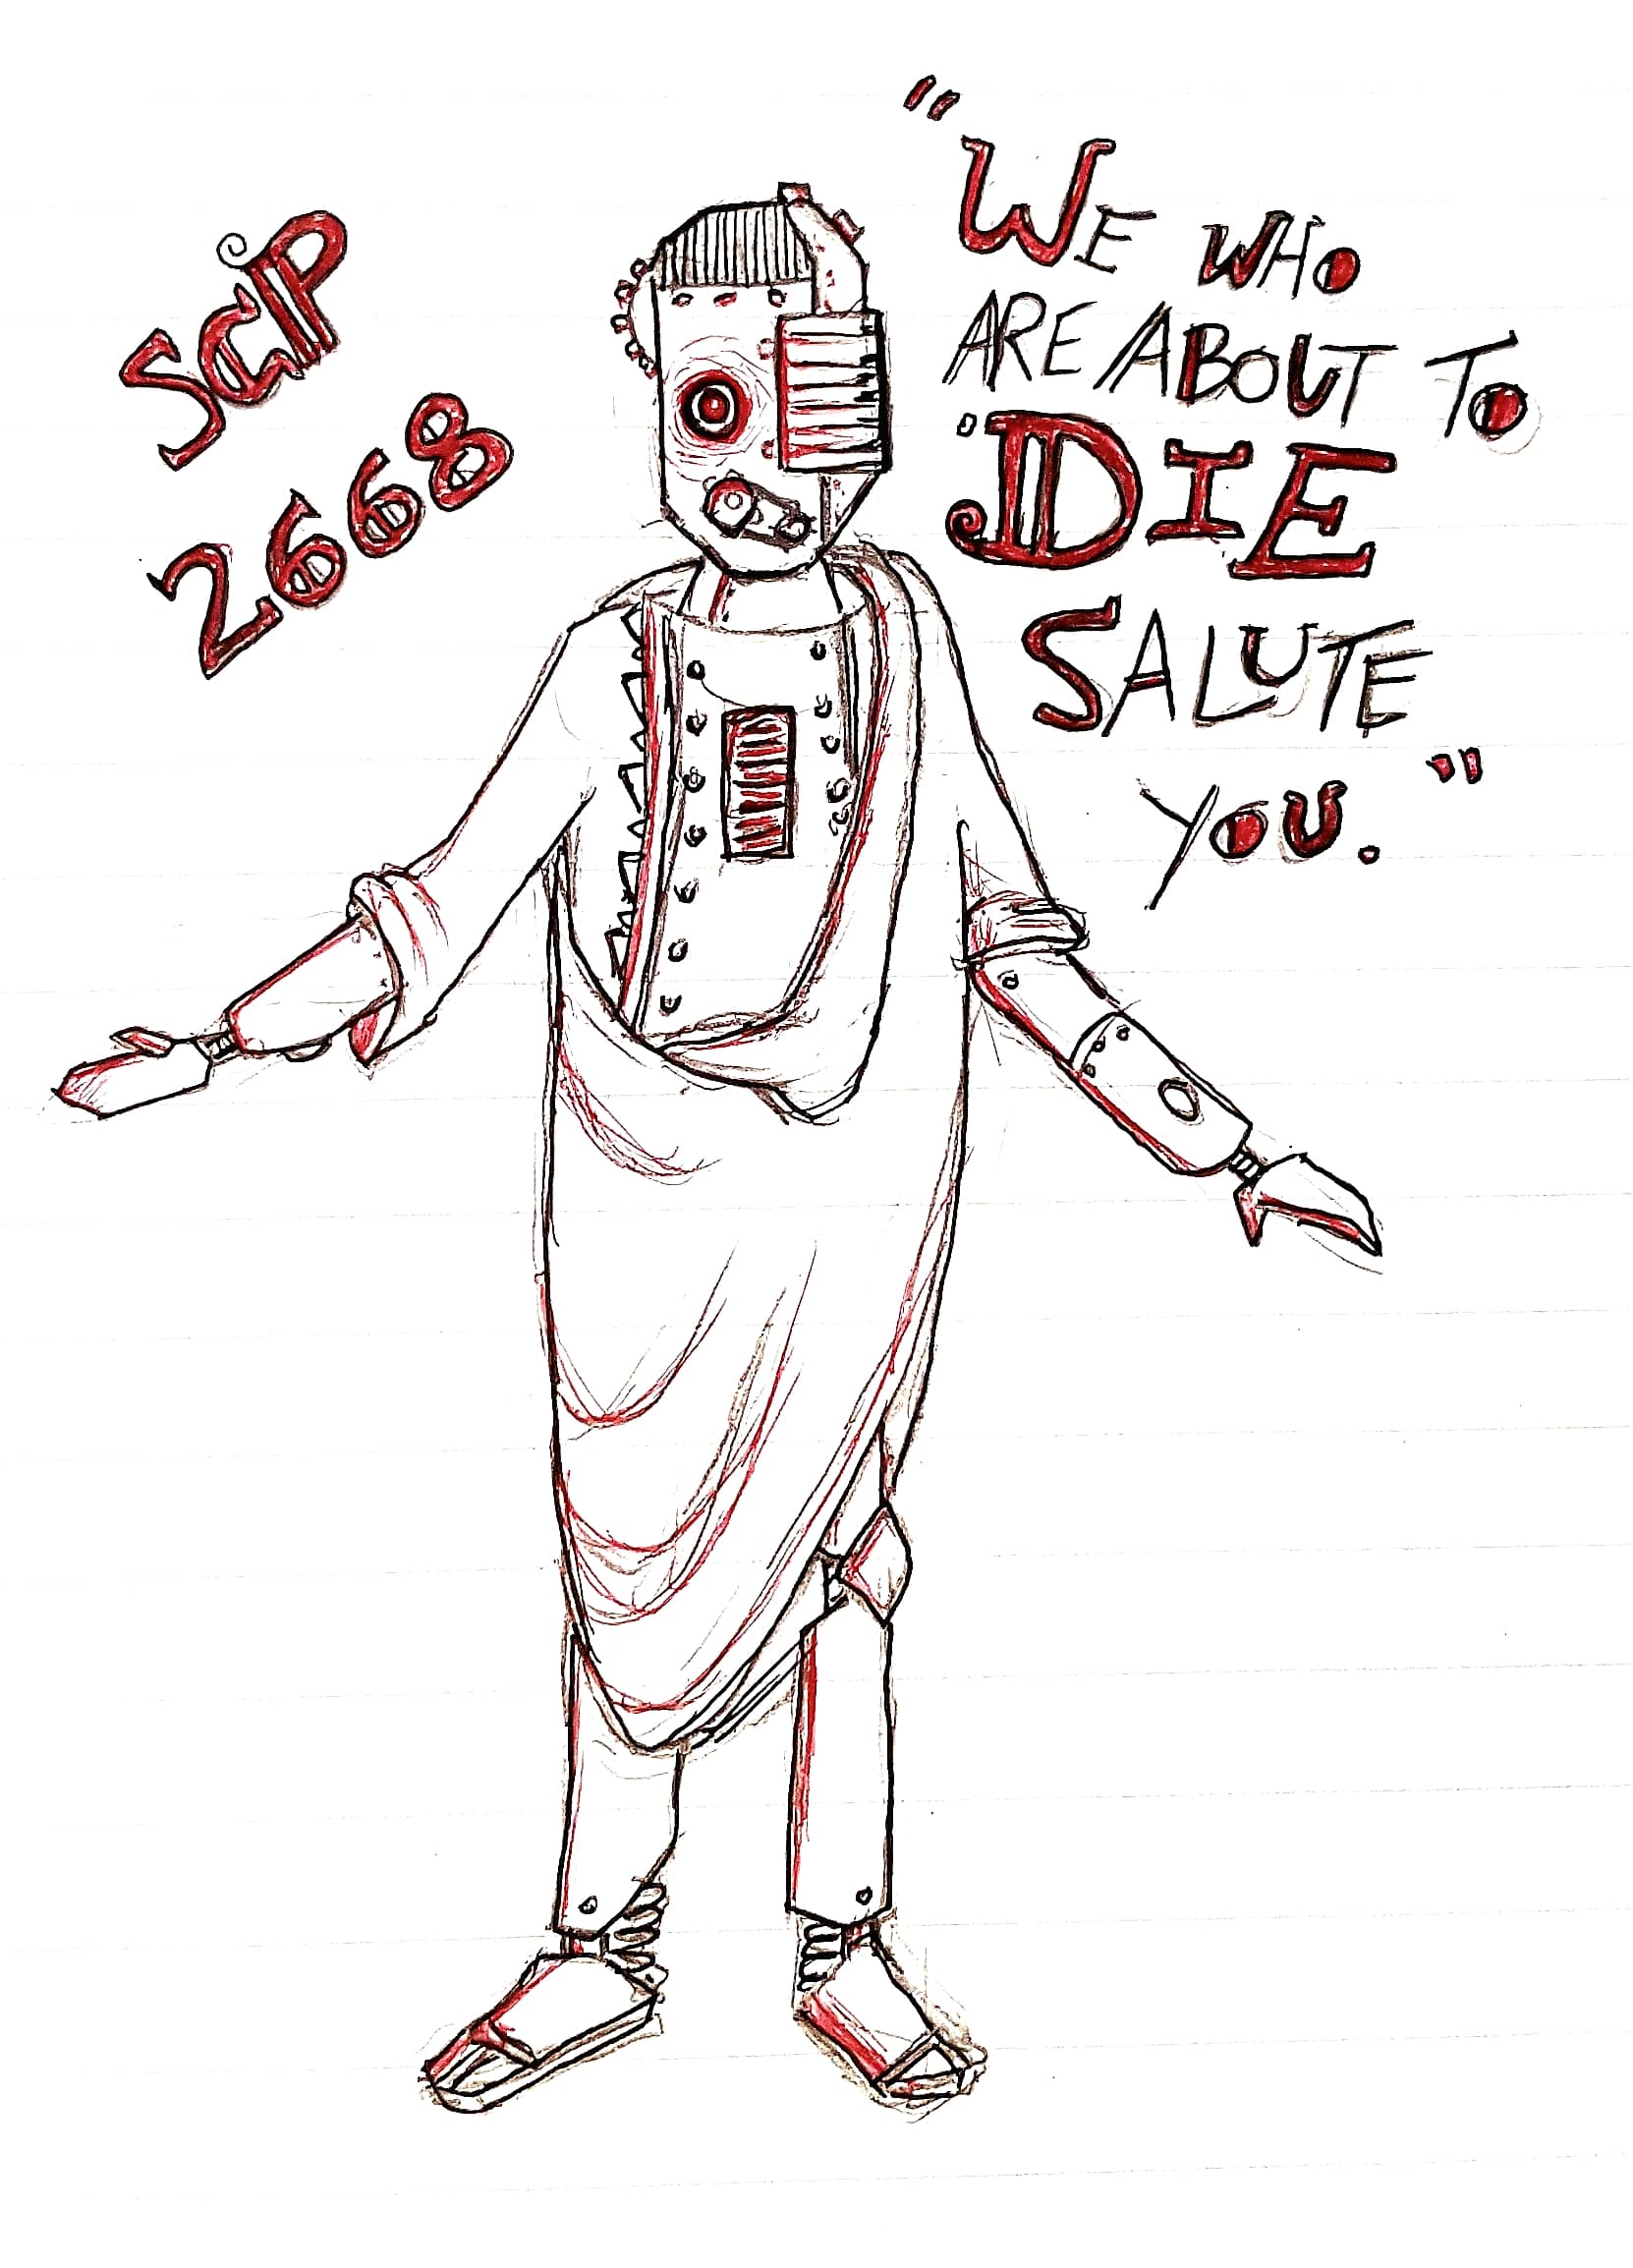 SCIP
2668
"WE WHO
ARE ABOUT TO
DIE
SALUTE
YOU."